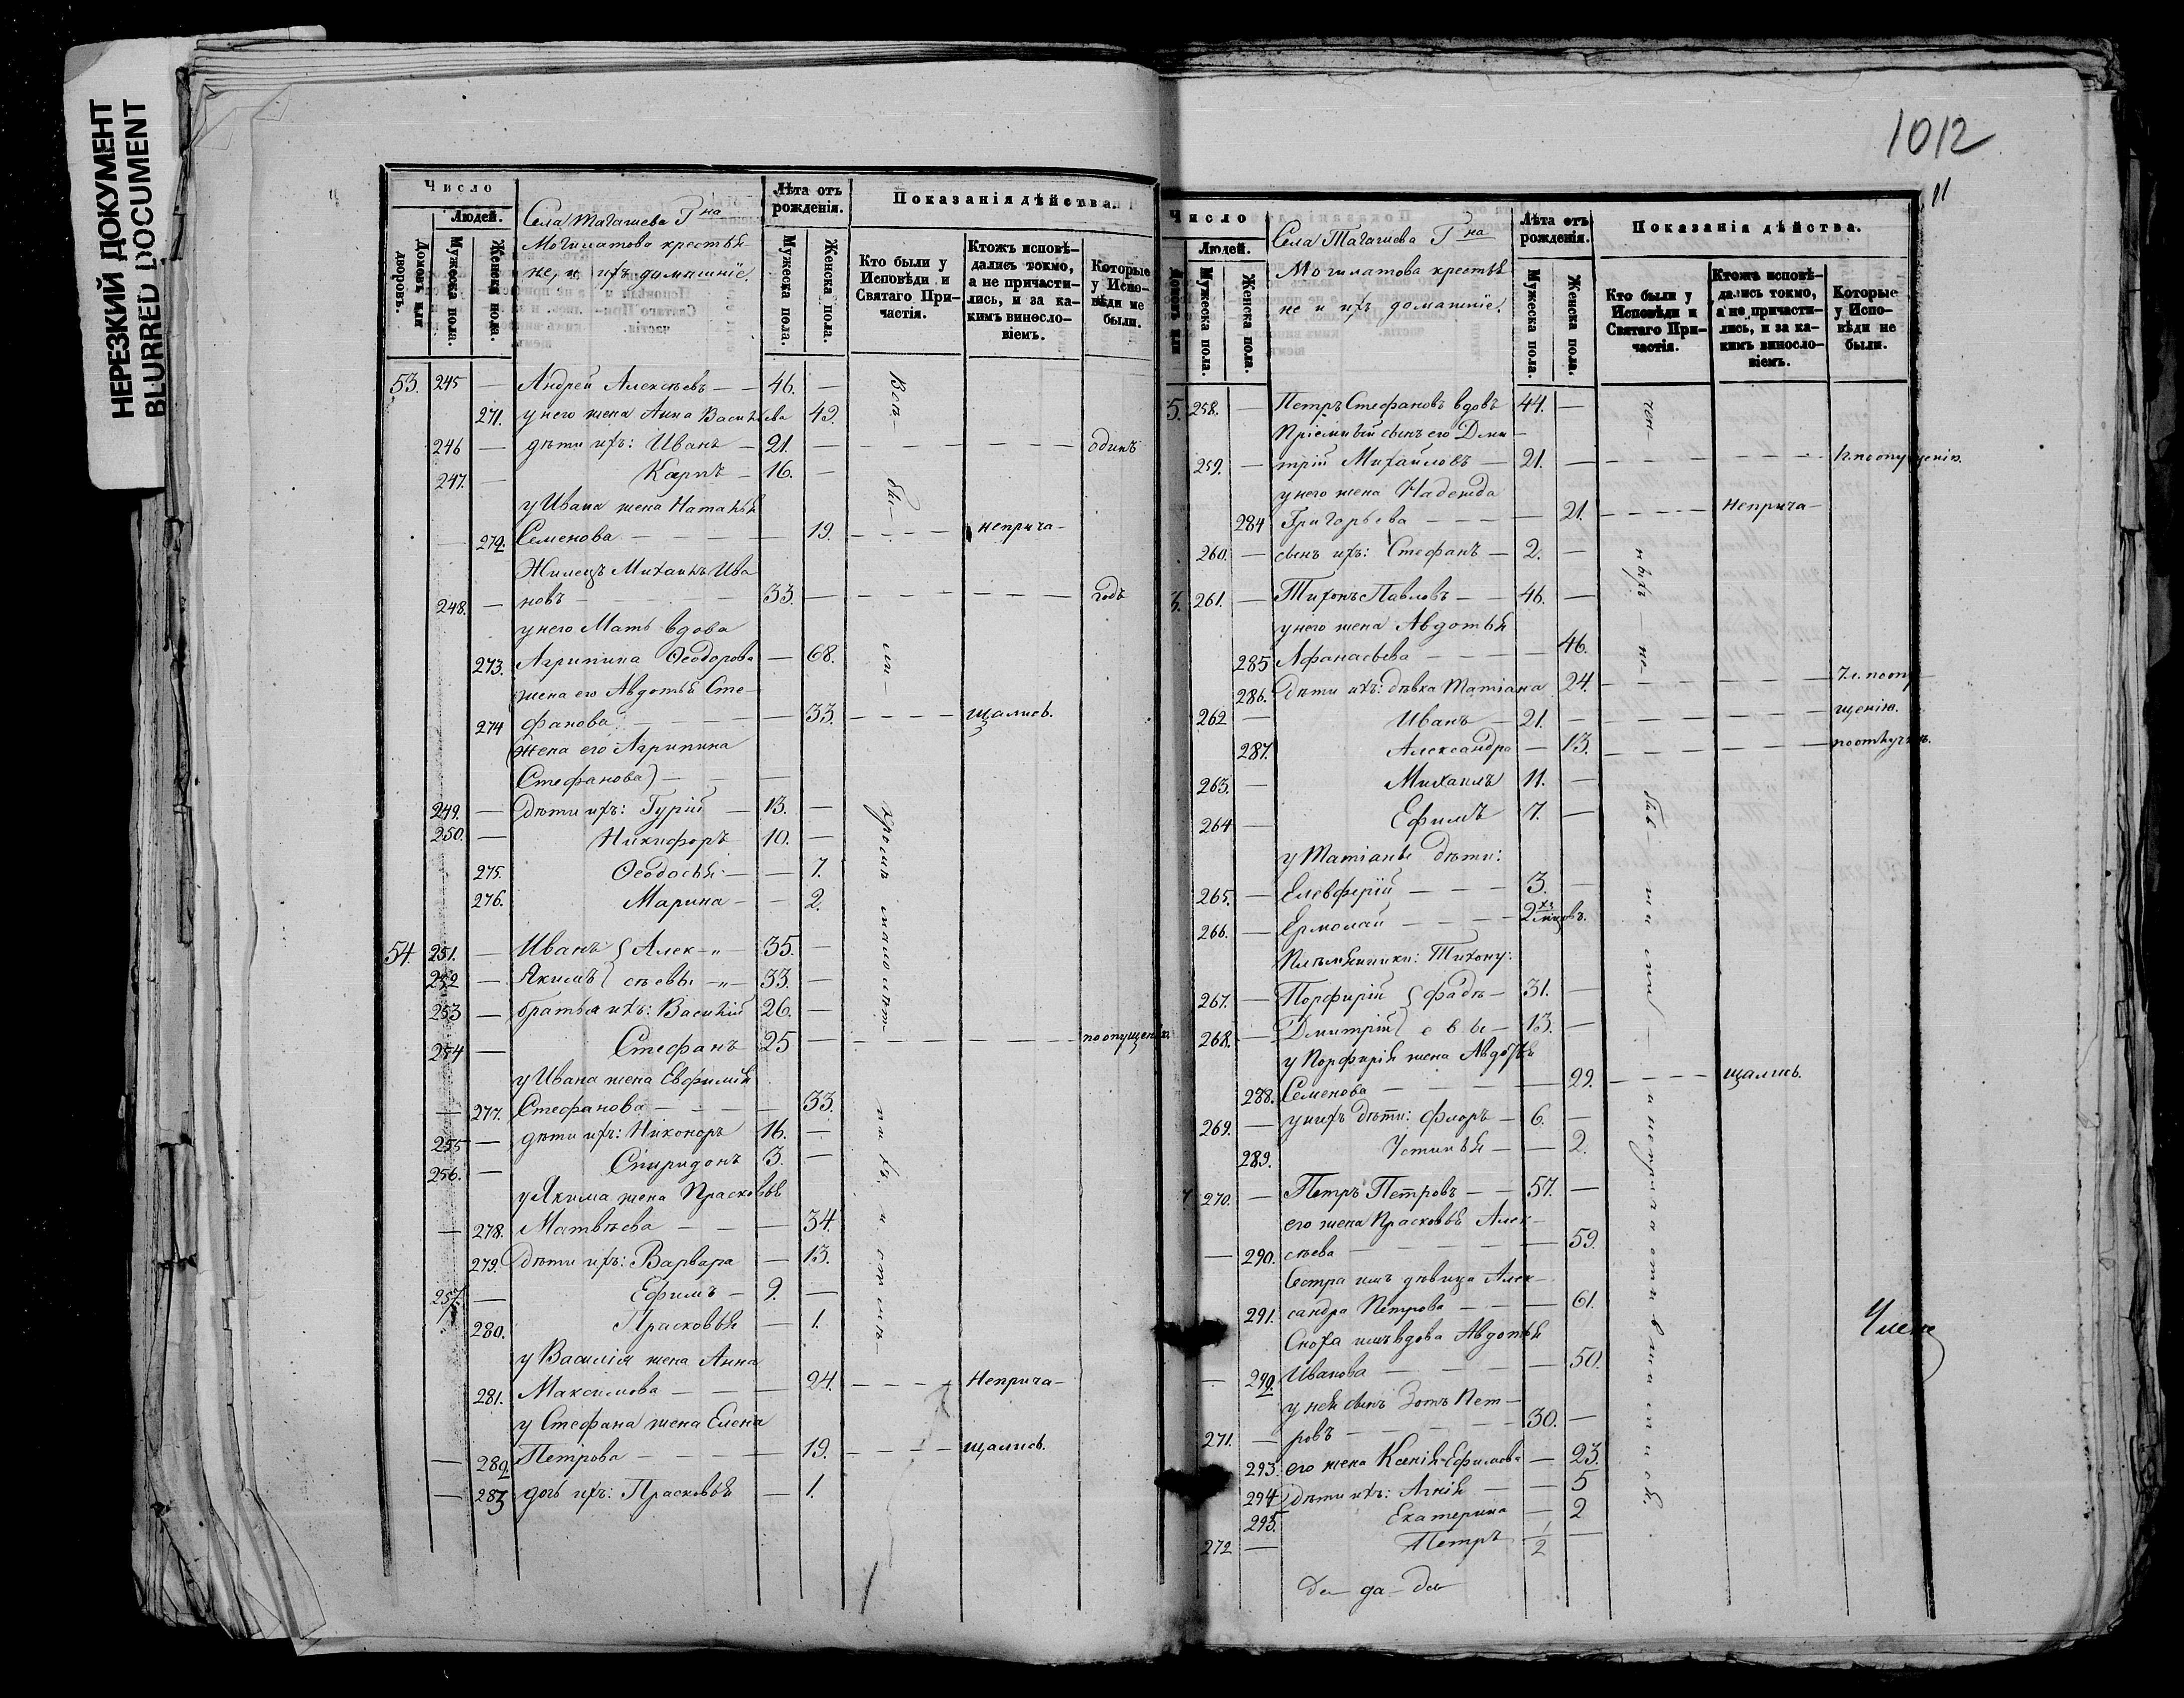 НЕРЕЗКИЙ ДОКУМЕНТ
BLURRED DOCUMENT
Число
Людей.
Домовъ или дворовъ.
Мужеска пола.
Женска пола.
Села Тагашева Г-на
Могиматова крестья
не, и ихъ домашніе.
Лѣта отъ рожденія.
Мужеска пола.
Женска пола.
Показанія дѣйства.
Кто были у Исповѣди и Святаго Причастія.
Ктожъ исповѣдались токмо, а не причастились, и за какимъ винословіемъ.
Которые у Исповѣди не были.
53. 245 — Андрей Алексѣевъ — — 46. —
271. у него жена Анна Васильева 49.
246 — дѣти ихъ: Иванъ — 21. — одинъ
247. — Карпъ — 16. —
у Ивана жена Наталья
272. Семенова — 19. неприча-
Жилецъ Михаилъ Ива
248. — новъ — 33. — годъ
у него Мать вдова
273. Агрипина Ѳеодорова — 68.
жена его Авдотья Сте-
274 фанова — 33. щались.
(жена его Агрипина
Стефанова) —
249. — дѣти ихъ: Гурій — 13. —
250. — Никифоръ 10. —
275. Ѳеодосья — — 7.
276. Марина — — 2.
54. 251. — Иванъ { Алек-„- 35. —
252 — Якимъ { сѣевы -„- 33. —
253 — братья ихъ: Василій 26. —
254 — Стефанъ 25 — по опущенію.
у Ивана жена Евфимія
277. Стефанова — 33.
255 — дѣти ихъ: Никоноръ 16. —
256. — Спиридонъ 3. —
у Якима жена Прасковья
278. Матвѣева — 34.
279. дѣти ихъ: Варвара — 13.
257. — Ефимъ — 9. —
280. Прасковья — 1.
у Василія жена Анна
281. Максимова — 24. Неприча-
у Стефана жена Елена
282. Петрова — 19. щались.
283 дочь ихъ: Прасковья — 1.
Всѣ-
бы-
ли-
кромѣ малолѣт
1012
11
Число
Людей.
Домовъ или
Мужеска пола.
Женска пола.
Села Тагашева Г-на
Могиматова крестья
не и ихъ домашніе.
Лѣта отъ рожденія.
Мужеска пола.
Женска пола.
Показанія дѣйства.
Кто были у Исповѣди и Святаго Причастія.
Ктожъ исповѣдались токмо, а не причастились, и за какимъ винословіемъ.
Которые у Исповѣди не были.
5. 258. — Петръ Стефановъ вдовъ 44. —
Пріемный сынъ его Дми-
259. — трій Михайловъ — 21. — по опущенію.
у него жена Надежда
284 Григорьева — 21. Неприча-
260. — сынъ ихъ: Стефанъ — 2. —
261. — Тихонъ Павловъ — — 46. —
у него жена Авдотья
285 Афанасьева — 46.
286. Дѣти ихъ: дѣвка Татіана 24. по опу-
262 — Иванъ — 21. — щенію.
287. Александра — 13. по отлучкѣ.
263. — Михаилъ 11. —
264 — Ефимъ 7. —
у Татіаны дѣти:
265. — Елевферій — 3. —
266. — Ермолай — 2хъ мѣсяцовъ.
Племянники: Тихону:
267. — Порфирій { Фадѣ- 31. —
268. — Дмитрій { е в ы — 13. —
у Порфирія жена Авдотья
288. Семенова — 29. щались.
269. — у нихъ дѣти: Флоръ — 6. —
289. Устинья — — 2.
270. — Петръ Петровъ — — 57. —
его жена Прасковья Алек-
290. сѣева — 59.
Сестра имъ дѣвица Алек-
291. сандра Петрова — 61.
Сноха имъ вдова Авдотья
292. Иванова — 50.
у нея сынъ Зотъ Пет-
271. — ровъ — 30. —
293. его жена Ксенія Ефимова — 23.
294 дѣти ихъ: Агнія — — 5
295. Екатерина — 2
272 — Петръ 1/2 —
Члена